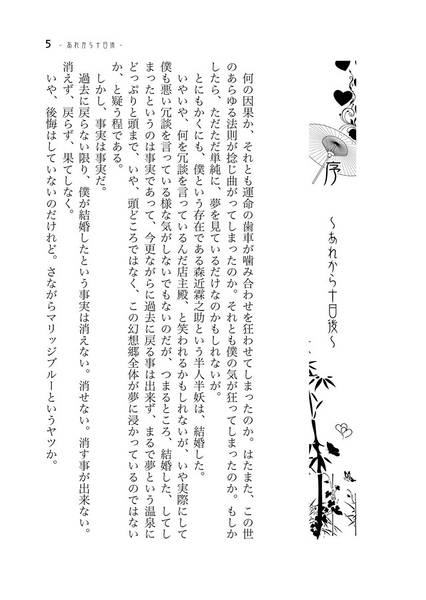 5 - あれから十日後 -
序 ～あれから十日後～
何の因果か、それとも運命の歯車が噛み合わせを狂わせてしまったのか。はたまた、この世
のあらゆる法則が捻じ曲がってしまったのか。それとも僕の気が狂ってしまったのか。もしか
したら、ただただ単純に、夢を見ているだけなのかもしれないが。
とにもかくにも、僕という存在である森近霖之助という半人半妖は、結婚した。
いやいや、何を冗談を言っているんだ店主殿、と笑われるかもしれないが、いや実際にして
僕も悪い冗談を言っている様な気がしないでもないのだが、つまるところ、結婚した。してし
まったというのは事実であって、今更ながらに過去に戻る事は出来ず、まるで夢という温泉に
どっぷりと頭まで、いや、頭どころではなく、この幻想郷全体が夢に浸かっているのではない
か、と疑う程である。
しかし、事実は事実だ。
過去に戻らない限り、僕が結婚したという事実は消えない。消せない。消す事が出来ない。
消えず、戻らず、果てしなく。
いや、後悔はしていないのだけれど。さながらマリッジブルーというヤツか。